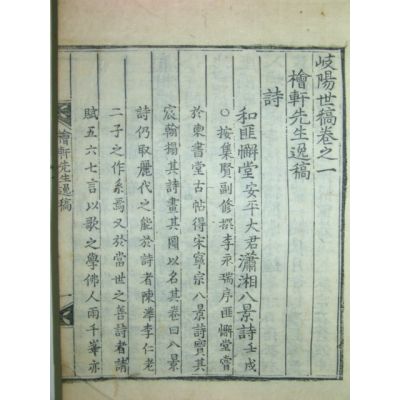 岐陽世稿卷之一
檜軒先生逸稿
詩
和匪懈堂安平大君瀟湘八景詩壬戌
○按集賢副修撰李永瑞序匪懈堂嘗
於東書堂古帖得宋寧宗八景詩寶其
宸翰搨其詩畫其圖以名其卷曰八景
詩仍取麗代之能於詩者陳澕李仁老
二子之作系焉又於當世之善詩者請
賦五六七言以歌之學佛人雨千峯亦
檜軒先生逸稿
一